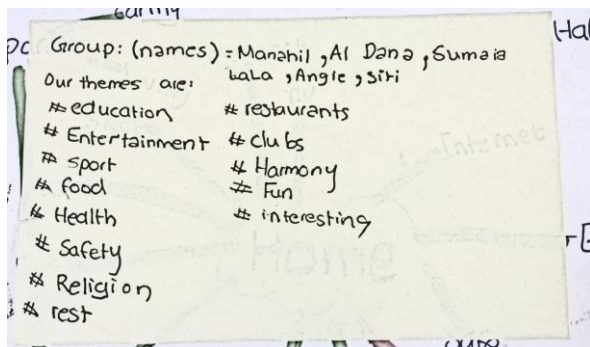 Group: (names) = Manahil , Al Dana , Sumaia
LaLa , Angle , Siri
Our themes are:
# education
# Entertainment
# sport
# food
# Health
# Safety
# Religion
# rest
# restaurants
# clubs
# Harmony
# Fun
# interesting
Internet
Home